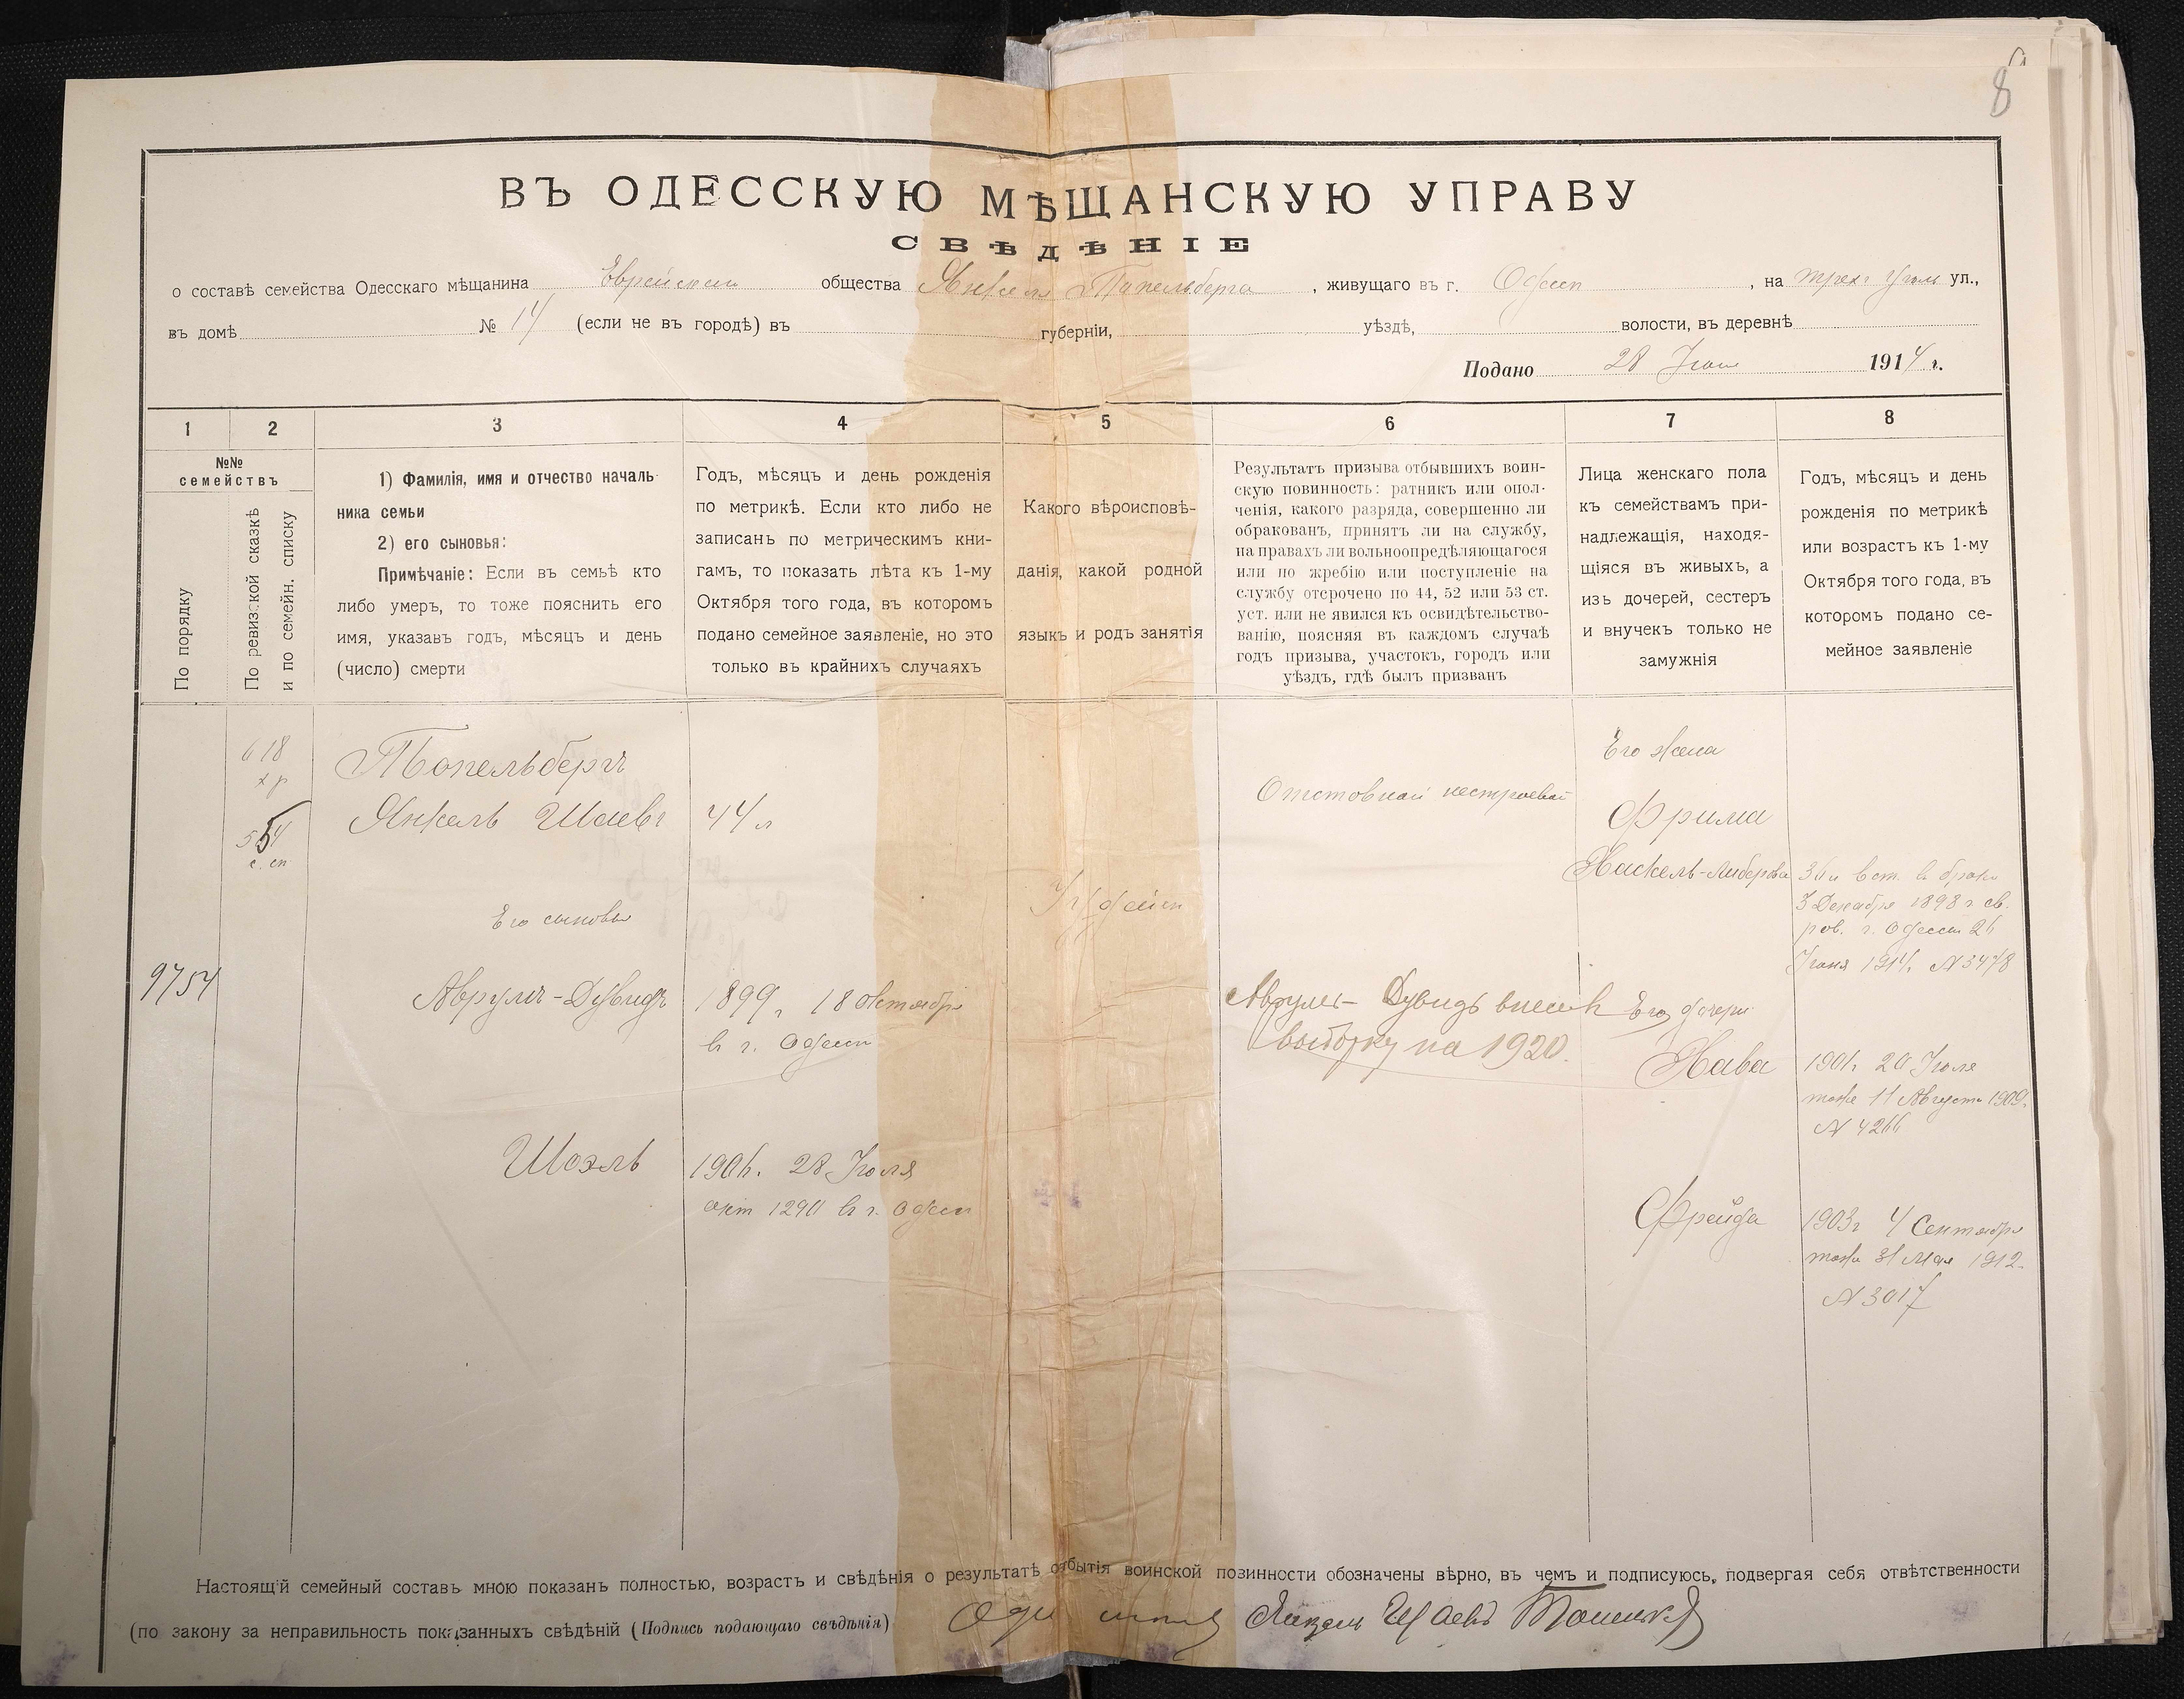 8
ВЪ ОДЕССКУЮ МѢЩАНСКУЮ УПРАВУ
СВѢДѢНІЕ
о составѣ семейства Одесскаго мѣщанина Еврейскаго общества Янкеля Топельберга, живущаго въ г. Одессѣ, на Трехъ Угольн ул.,
въ домѣ № 14 (если не въ городѣ) въ губерніи, уѣздѣ, волости, въ деревнѣ
Подано 28 1914 г.
1 2 3 4 5 6 7 8
№№
семействъ
По порядку
По ревизской сказкѣ
и по семейн. списку
1) Фамилія, имя и отчество началь-
ника семьи
2) его сыновья:
Примѣчаніе: Если въ семьѣ кто
либо умеръ, то тоже пояснить его
имя, указавъ годъ, мѣсяцъ и день
(число) смерти
Годъ, мѣсяцъ и день рожденія
по метрикѣ. Если кто либо не
записанъ по метрическимъ кни-
гамъ, то показать лѣта къ 1-му
Октября того года, въ которомъ
подано семейное заявленіе, но это
только въ крайнихъ случаяхъ
Какого вѣроисповѣ-
данія, какой родной
языкъ и родъ занятія
Результатъ призыва отбывшихъ воин-
скую повинность: ратникъ или опол-
ченія, какого разряда, совершенно ли
обракованъ, принятъ ли на службу,
на правахъ ли вольноопредѣляющагося
или по жребію или поступленіе на
службу отсрочено по 44, 52 или 53 ст.
уст. или не явился къ освидѣтельство-
ванію, поясняя въ каждомъ случаѣ
годъ призыва, участокъ, городъ или
уѣздъ, гдѣ былъ призванъ
Лица женскаго пола
къ семействамъ при-
надлежащія, находя-
щіяся въ живыхъ, а
изъ дочерей, сестеръ
и внучекъ только не
замужнія
Годъ, мѣсяцъ и день
рожденія по метрикѣ
или возрастъ къ 1-му
Октября того года, въ
которомъ подано се-
мейное заявленіе
618
х р
с. сп
9754
Топельбергъ
Янкель Шаевъ
Его сыновья
Аврумъ-Дувидъ
Шоэль
44 л
1899 г 18 Октября
в г. Одессѣ
1906 г. 28 Іюля
акт 1290 въ г. Одессѣ
Іудейск
Отставной нестроевой
Аврумъ-Дувидъ внесенъ
выборку на 1920.
Его жена
Фрима
Хаскель-Либерова
Его дочери
Хава
Фрейда
36 л вст. въ бракъ
3 Декабря 1898 г св.
г. Одессы 26
Іюня 1914. N 3478
1901 г 20 Іюля
тоже 11 Августа 1909.
N 4266
1903 г 4 Сентября
тоже 31 Мая 1912.
N 3017
Настоящій семейный составъ мною показанъ полностью, возрастъ и свѣдѣнія о результатѣ отбытія воинской повинности обозначены вѣрно, въ чемъ и подписуюсь, подвергая себя отвѣтственности
(по закону за неправильность показанныхъ свѣдѣній (Подпись подающаго свѣдѣнія)